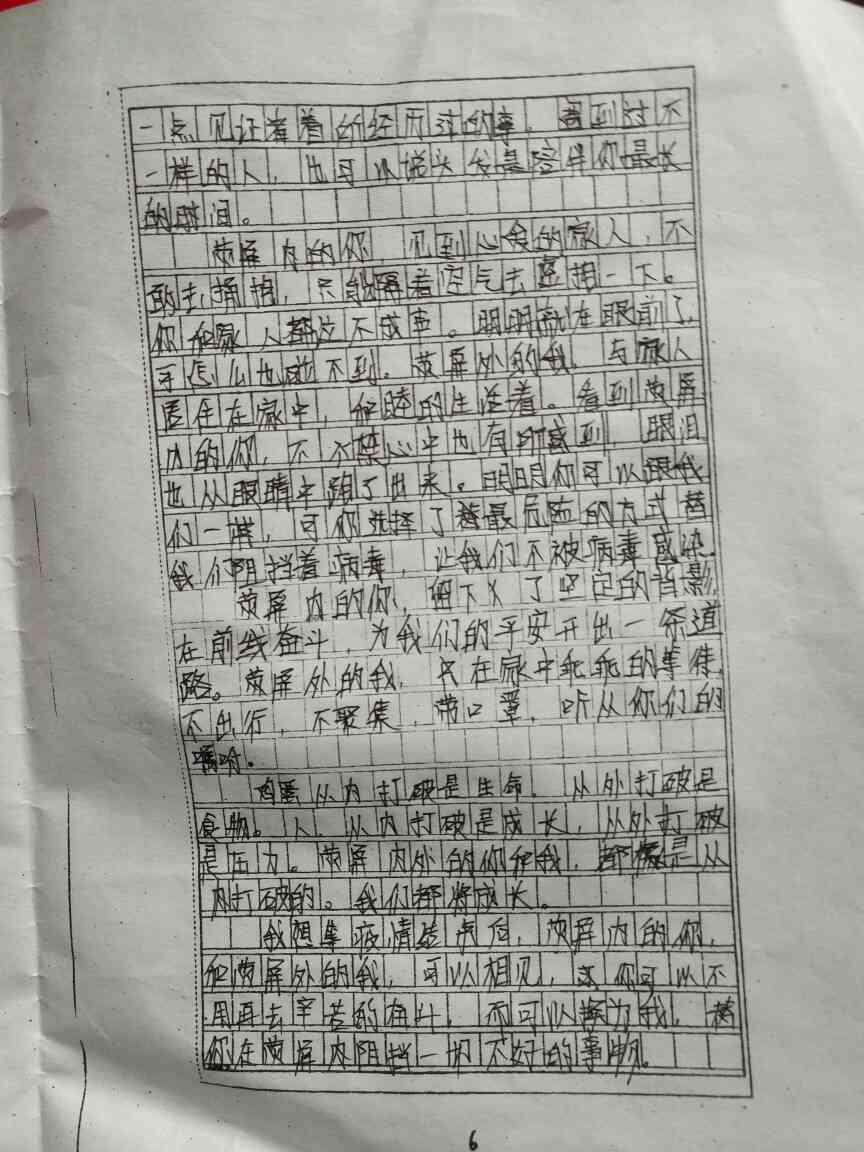 一点见证着着所经历过的事，看到过不
一样的人，也可以说头发是陪伴你最长
的时间。
荧屏内的你，见到心食的家人，不
敢去拥抱，只能隔着空气去抱一下。
你和家人都泣不成声。明明就在眼前了，
可怎么也碰不到。荧屏外的我，与家人
居住在家中，和睦的生活着。看到荧屏
内的你，不不禁心中也有所感到，眼泪
也从眼睛中跑了出来。明明你可以跟我
们一样，可你选择了替最危险的方式替
我们阻挡着病毒，让我们不被病毒感染。
荧屏内的你，留下了坚定的背影，
在前线奋斗，为我们的平安开出一条道
路。荧屏外的我，只在家中乖乖的等待，
不出行，不聚集，带口罩，听从你们的
嘱咐。
鸡蛋从内打破是生命，从外打破是
食物。人，从内打破是成长，从外打破
是压力。荧屏内外的你和我，都是从
内打破的。我们都将成长。
我想等疫情结束后，荧屏内的你，
和荧屏外的我，可以相见，你可以不
用再去辛苦的奋斗，而可以换为我，替
你在荧屏内阻挡一切不好的事物。
6